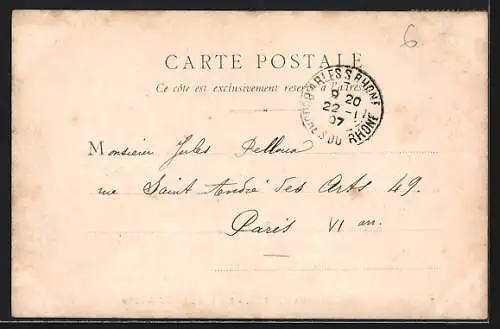 6
CARTE POSTALE
Ce côté est exclusivement réservé à l'adresse
ARLES-S-RHONE
8 20
22 - 11
07
BCHES DU RHONE
Monsieur Jules Pelloux
rue Saint André des Arts 49.
Paris VI arr.